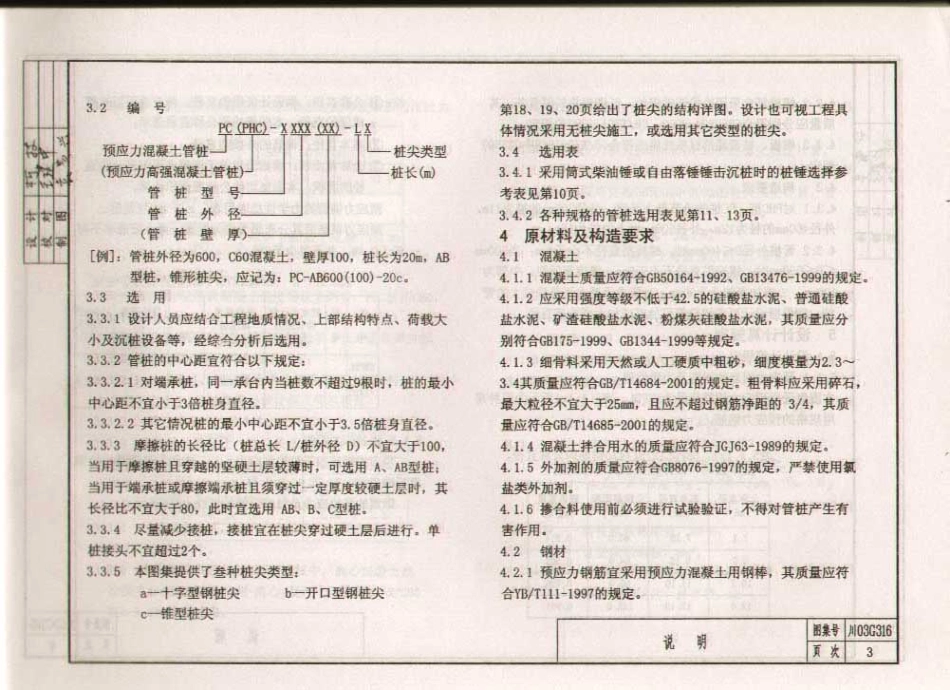 3.2 编 号
PC (PHC) - X XXX (XX) - L X
预应力混凝土管桩
(预应力高强混凝土管桩)
管 桩 型 号
管 桩 外 径
(管 桩 壁 厚)
桩尖类型
桩长(m)
[例]: 管桩外径为600, C60混凝土, 壁厚100, 桩长为20m, AB
型桩, 锥形桩尖, 应记为: PC-AB600(100)-20c。
3.3 选 用
3.3.1 设计人员应结合工程地质情况、上部结构特点、荷载大
小及沉桩设备等, 经综合分析后选用。
3.3.2 管桩的中心距宜符合以下规定:
3.3.2.1 对端承桩, 同一承台内当桩数不超过9根时, 桩的最小
中心距不宜小于3倍桩身直径。
3.3.2.2 其它情况桩的最小中心距不宜小于3.5倍桩身直径。
3.3.3 摩擦桩的长径比 (桩总长 L/桩外径 D) 不宜大于100,
当用于摩擦桩且穿越的坚硬土层较薄时, 可选用 A、AB型桩;
当用于端承桩或摩擦端承桩且须穿过一定厚度较硬土层时, 其
长径比不宜大于80, 此时宜选用 AB、B、C型桩。
3.3.4 尽量减少接桩, 接桩宜在桩尖穿过硬土层后进行。单
桩接头不宜超过2个。
3.3.5 本图集提供了叁种桩尖类型:
a—十字型钢桩尖 b—开口型钢桩尖
c—锥型桩尖
第18、19、20页给出了桩尖的结构详图。设计也可视工程具
体情况采用无桩尖施工, 或选用其它类型的桩尖。
3.4 选用表
3.4.1 采用筒式柴油锤或自由落锤锤击沉桩时的桩锤选择参
考表见第10页。
3.4.2 各种规格的管桩选用表见第11、13页。
4 原材料及构造要求
4.1 混凝土
4.1.1 混凝土质量应符合GB50164-1992、GB13476-1999的规定。
4.1.2 应采用强度等级不低于42.5的硅酸盐水泥、普通硅酸
盐水泥、矿渣硅酸盐水泥、粉煤灰硅酸盐水泥, 其质量应分
别符合GB175-1999、GB1344-1999等规定。
4.1.3 细骨料采用天然或人工硬质中粗砂, 细度模量为2.3~
3.4其质量应符合GB/T14684-2001的规定。粗骨料应采用碎石,
最大粒径不宜大于25mm, 且应不超过钢筋净距的 3/4, 其质
量应符合GB/T14685-2001的规定。
4.1.4 混凝土拌合用水的质量应符合JGJ63-1989的规定。
4.1.5 外加剂的质量应符合GB8076-1997的规定, 严禁使用氯
盐类外加剂。
4.1.6 掺合料使用前必须进行试验验证, 不得对管桩产生有
害作用。
4.2 钢材
4.2.1 预应力钢筋宜采用预应力混凝土用钢棒, 其质量应符
合YB/T111-1997的规定。
设 计
校 对
制 图
说 明
图集号 川03G316
页 次 3